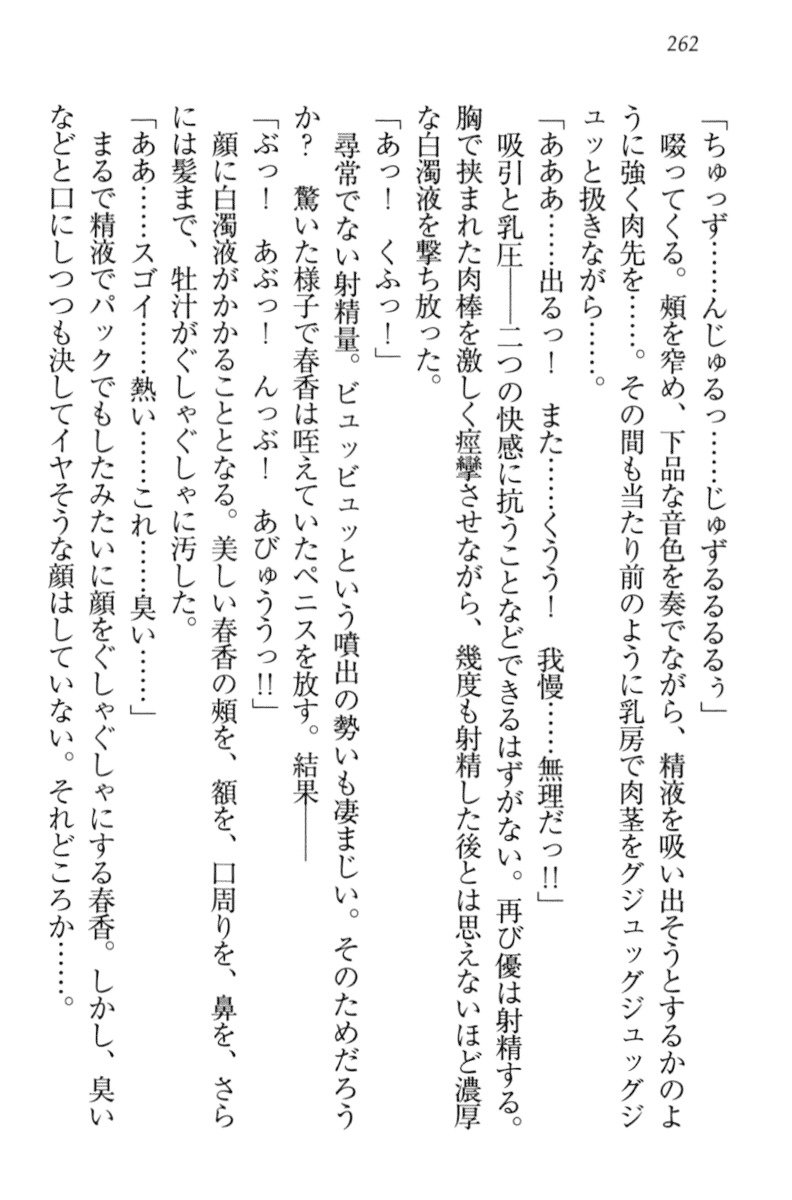 262
「ちゅっず……んじゅるっ……じゅずるるるるぅ」
啜ってくる。頬を窄め、下品な音色を奏でながら、精液を吸い出そうとするかのよ
うに強く肉先を……。その間も当たり前のように乳房で肉茎をグジュッグジュッグジ
ュッと扱きながら……。
「あああ……出るっ！　また……くうう！　我慢……無理だっ!!」
吸引と乳圧――二つの快感に抗うことなどできるはずがない。再び優は射精する。
胸で挟まれた肉棒を激しく痙攣させながら、幾度も射精した後とは思えないほど濃厚
な白濁液を撃ち放った。
「あっ！　くふっ！」
尋常でない射精量。ビュッビュッという噴出の勢いも凄まじい。そのためだろう
か？　驚いた様子で春香は咥えていたペニスを放す。結果――
「ぶっ！　あぶっ！　んっぶ！　あびゅううっ!!」
顔に白濁液がかかることとなる。美しい春香の頬を、額を、口周りを、鼻を、さら
には髪まで、牡汁がぐしゃぐしゃに汚した。
「ああ……スゴイ……熱い……これ……臭い……」
まるで精液でパックでもしたみたいに顔をぐしゃぐしゃにする春香。しかし、臭い
などと口にしつつも決してイヤそうな顔はしていない。それどころか……。